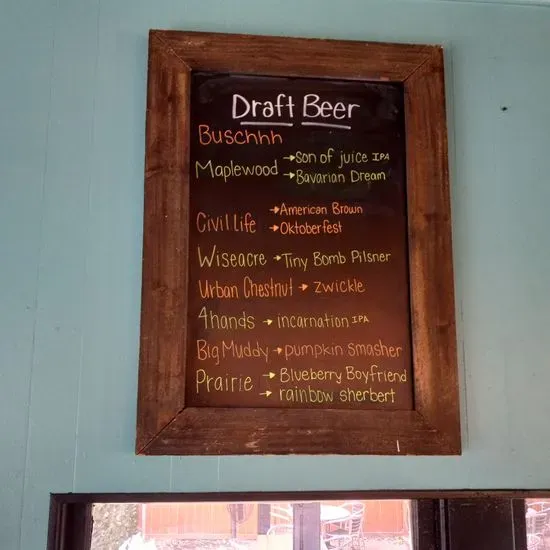 Draft Beer
Buschhh
Maplewood → Son of juice IPA
→ Bavarian Dream
Civil life → American Brown
→ Oktoberfest
Wiseacre → Tiny Bomb Pilsner
Urban Chestnut → Zwickle
4hands → incarnation IPA
Big Muddy → pumpkin smasher
Prairie → Blueberry Boyfriend
→ rainbow sherbert